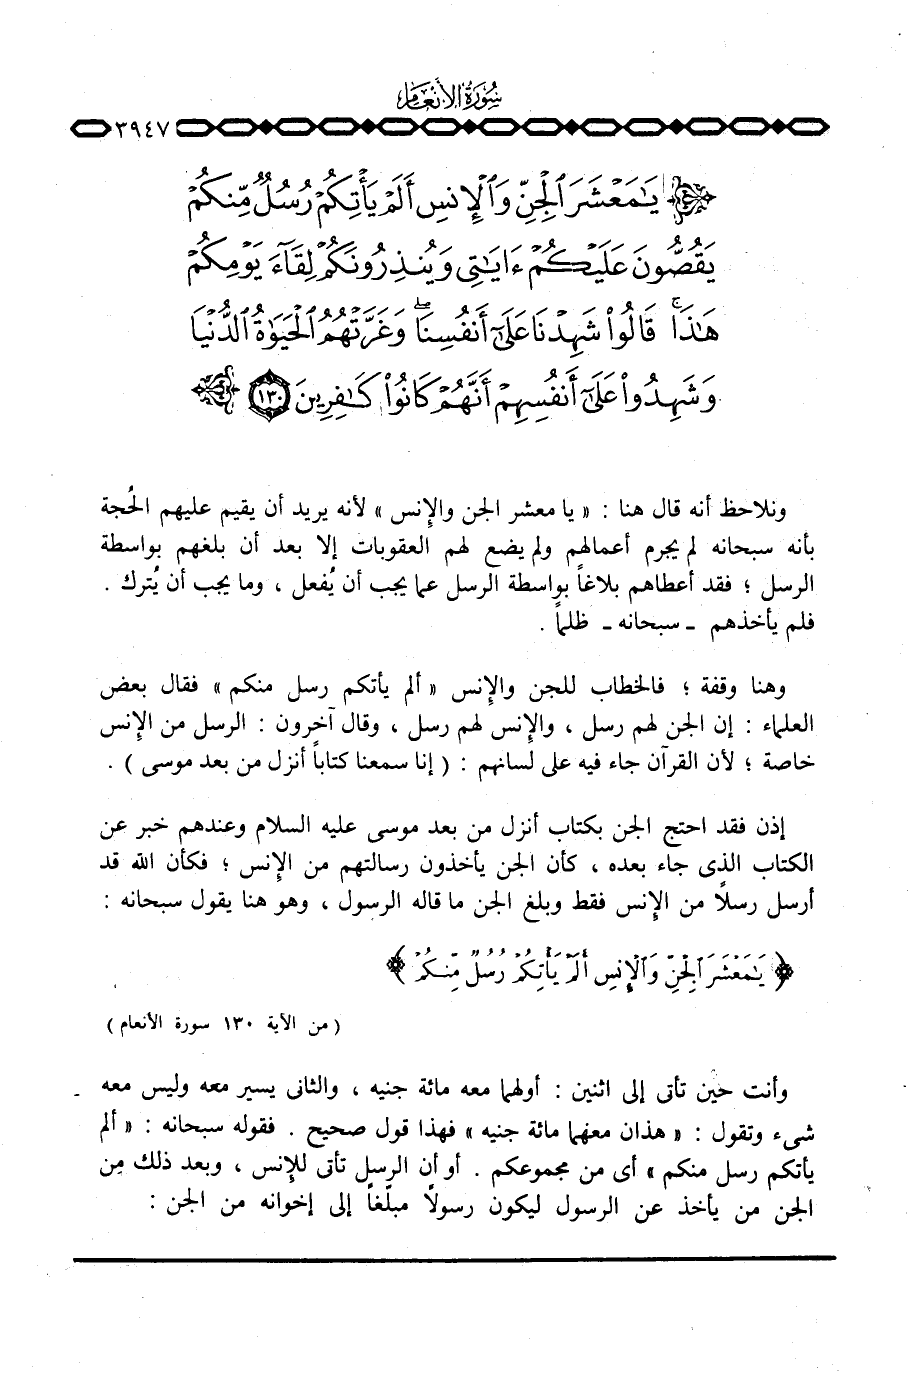 سورة الأنعام
٣٩٤٧
يَٰمَعْشَرَ ٱلْجِنِّ وَٱلْإِنسِ أَلَمْ يَأْتِكُمْ رُسُلٌ مِّنكُمْ
يَقُصُّونَ عَلَيْكُمْ ءَايَٰتِى وَيُنذِرُونَكُمْ لِقَآءَ يَوْمِكُمْ
هَٰذَا ۚ قَالُوا۟ شَهِدْنَا عَلَىٰٓ أَنفُسِنَا ۖ وَغَرَّتْهُمُ ٱلْحَيَوٰةُ ٱلدُّنْيَا
وَشَهِدُوا۟ عَلَىٰٓ أَنفُسِهِمْ أَنَّهُمْ كَانُوا۟ كَٰفِرِينَ ١٣٠
ونلاحظ أنه قال هنا : « يا معشر الجن والإنس » لأنه يريد أن يقيم عليهم الحُجة
بأنه سبحانه لم يجرم أعمالهم ولم يضع لهم العقوبات إلا بعد أن بلغهم بواسطة
الرسل ؛ فقد أعطاهم بلاغاً بواسطة الرسل عما يجب أن يُفعل ، وما يجب أن يُترك .
فلم يأخذهم ـ سبحانه ـ ظلماً .
وهنا وقفة ؛ فالخطاب للجن والإنس « ألم يأتكم رسل منكم » فقال بعض
العلماء : إن الجن لهم رسل ، والإنس لهم رسل ، وقال آخرون : الرسل من الإنس
خاصة ؛ لأن القرآن جاء فيه على لسانهم : ( إنا سمعنا كتاباً أنزل من بعد موسى ) .
إذن فقد احتج الجن بكتاب أنزل من بعد موسى عليه السلام وعندهم خبر عن
الكتاب الذى جاء بعده ، كأن الجن يأخذون رسالتهم من الإنس ؛ فكأن الله قد
أرسل رسلاً من الإنس فقط وبلغ الجن ما قاله الرسول ، وهو هنا يقول سبحانه :
﴿ يَٰمَعْشَرَ ٱلْجِنِّ وَٱلْإِنسِ أَلَمْ يَأْتِكُمْ رُسُلٌ مِّنكُمْ ﴾
( من الآية ١٣٠ سورة الأنعام )
وأنت حين تأتى إلى اثنين : أولهما معه مائة جنيه ، والثانى يسير معه وليس معه
شىء وتقول : « هذان معهما مائة جنيه » فهذا قول صحيح . فقوله سبحانه : « ألم
يأتكم رسل منكم » أى من مجموعكم . أو أن الرسل تأتى للإنس ، وبعد ذلك مِن
الجن من يأخذ عن الرسول ليكون رسولاً مبلّغاً إلى إخوانه من الجن :